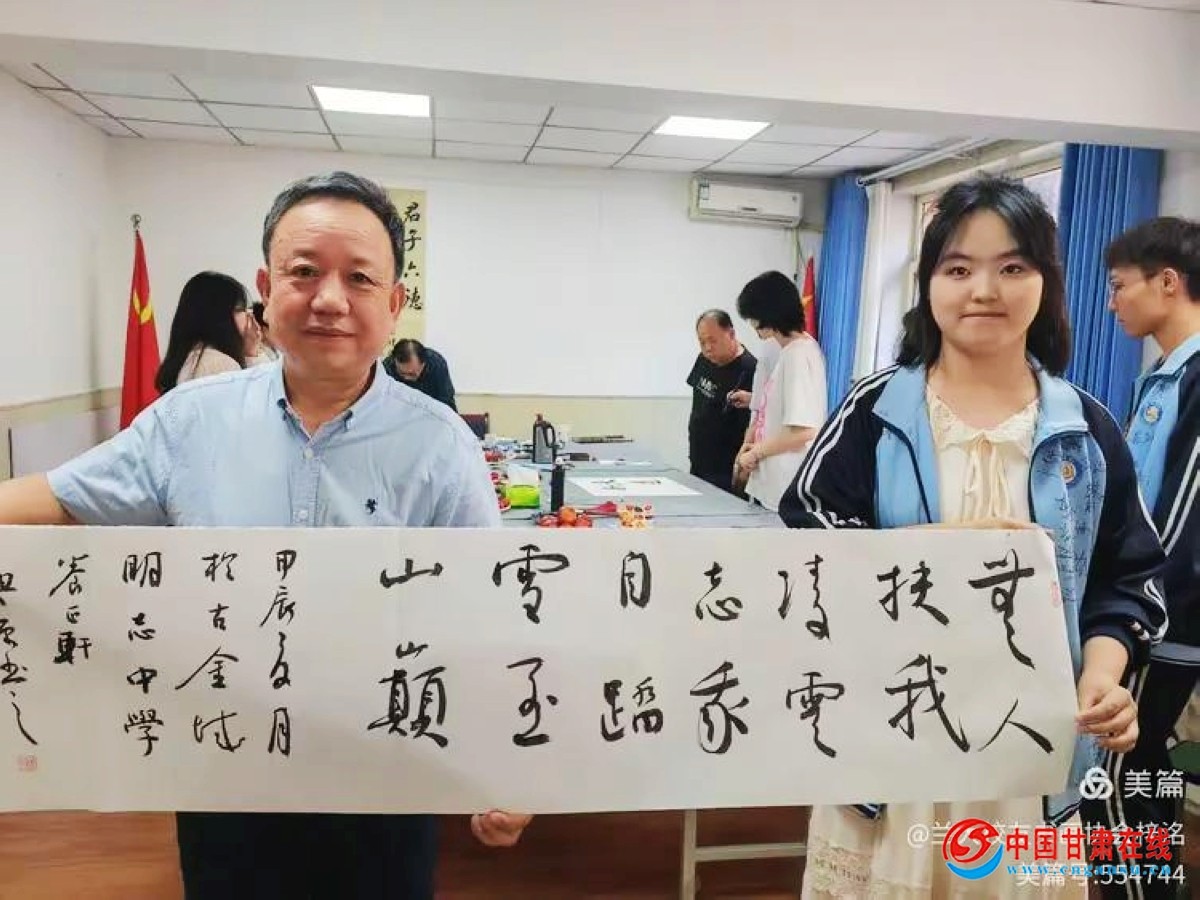 君子六德
無人
扶我
凌雲
志我
自踏
雪至
山巔
甲辰夏月
於古金城
明志中學
養正軒
書之
美篇
中国甘肃在线
美篇号:554744